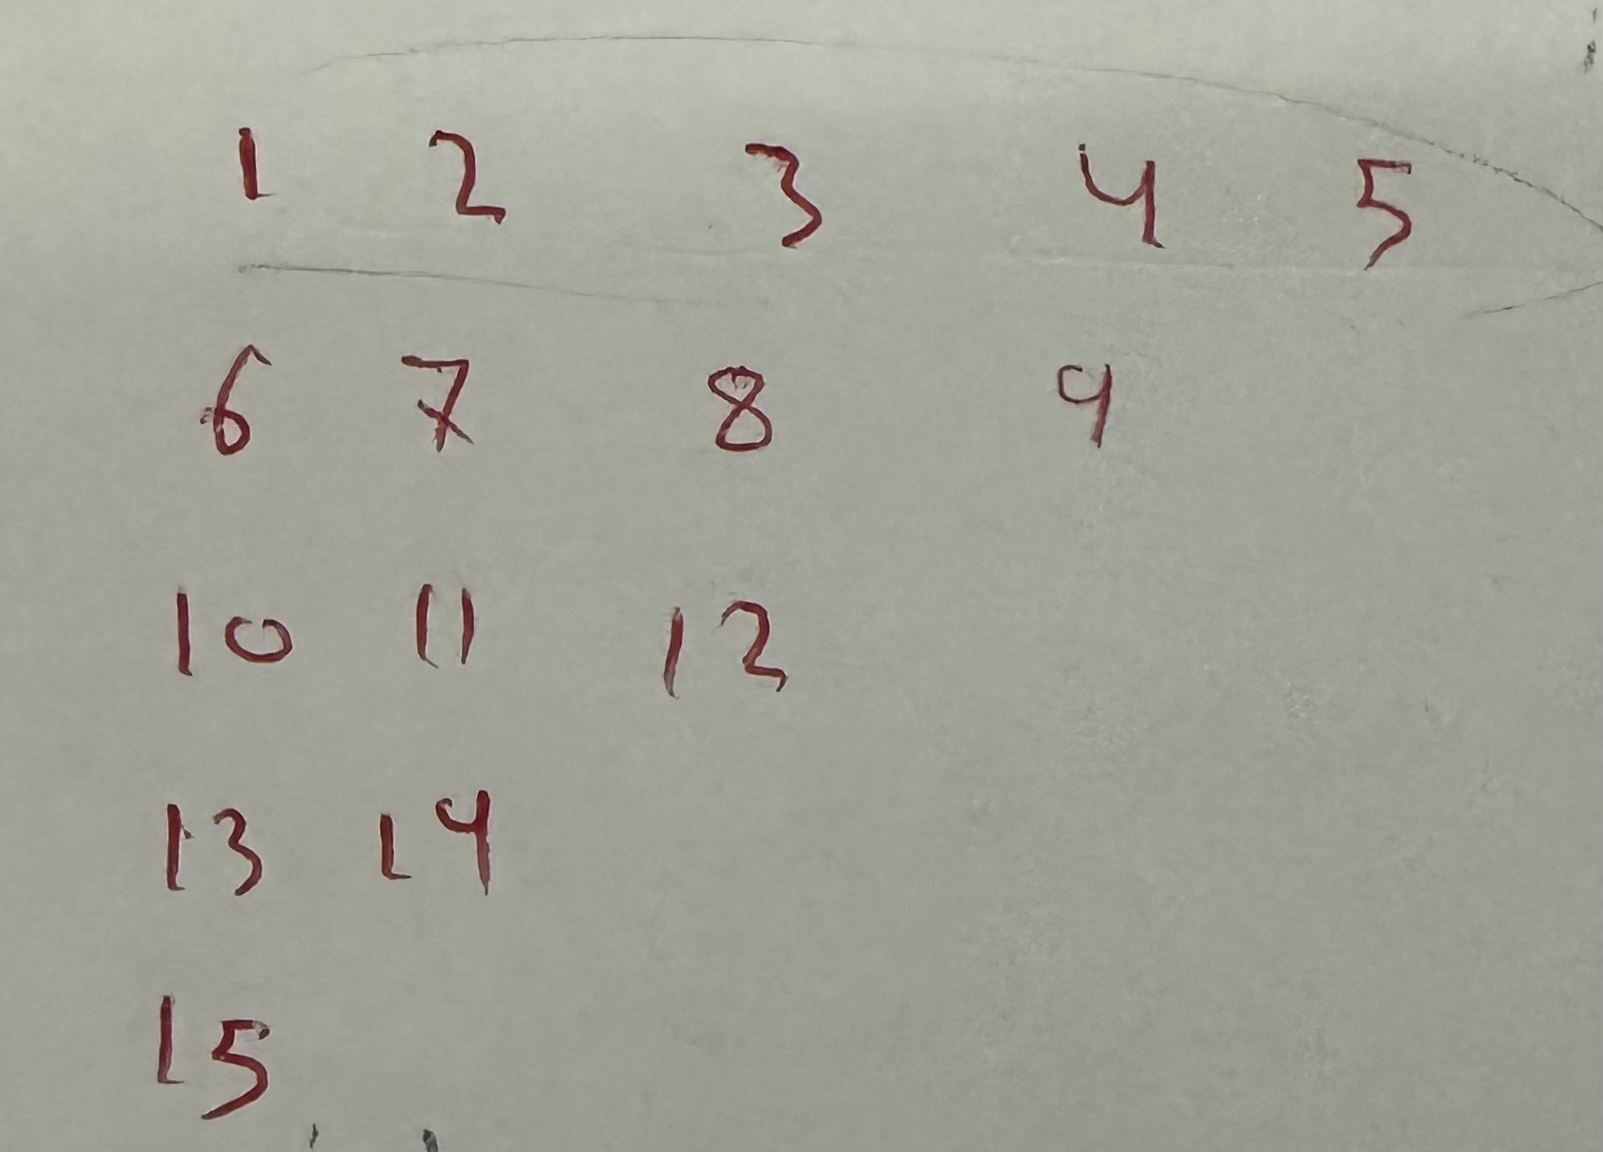 1 2 3 4 5
6 7 8 9
10 11 12
13 14
15